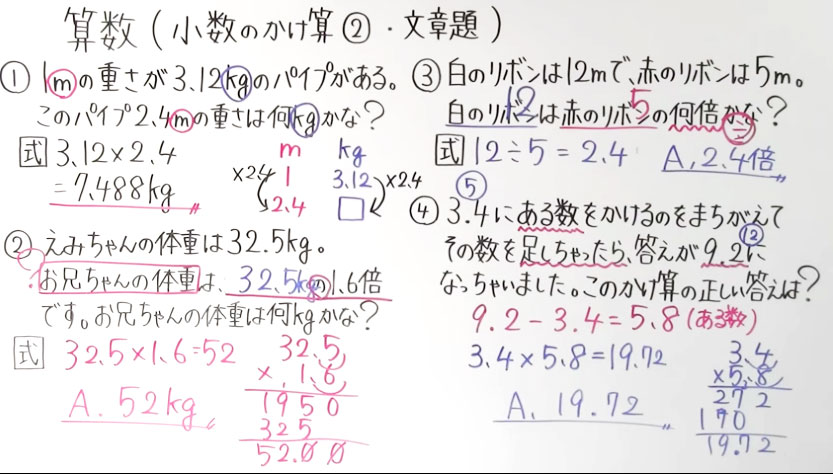 算数（小数のかけ算②・文章題）
① 1mの重さが3.12kgのパイプがある。
このパイプ2.4mの重さは何kgかな？
式 3.12×2.4
=7.488kg
m kg
×2.4 1 3.12 ×2.4
2.4 □
② えみちゃんの体重は32.5kg。
?
お兄ちゃんの体重は、32.5kgの1.6倍
です。お兄ちゃんの体重は何kgかな？
式 32.5×1.6=52
A. 52kg
32.5
×1.6
1950
325
52.00
③ 白のリボンは12mで、赤のリボンは5m。
12 5 =
白のリボンは赤のリボンの何倍かな？
式 12÷5=2.4 A. 2.4倍
⑤
④ 3.4にある数をかけるのをまちがえて
⑫
その数を足しちゃったら、答えが9.2に
なっちゃいました。このかけ算の正しい答えは？
9.2-3.4=5.8(ある数)
3.4×5.8=19.72
A. 19.72
3.4
×5.8
272
170
19.72